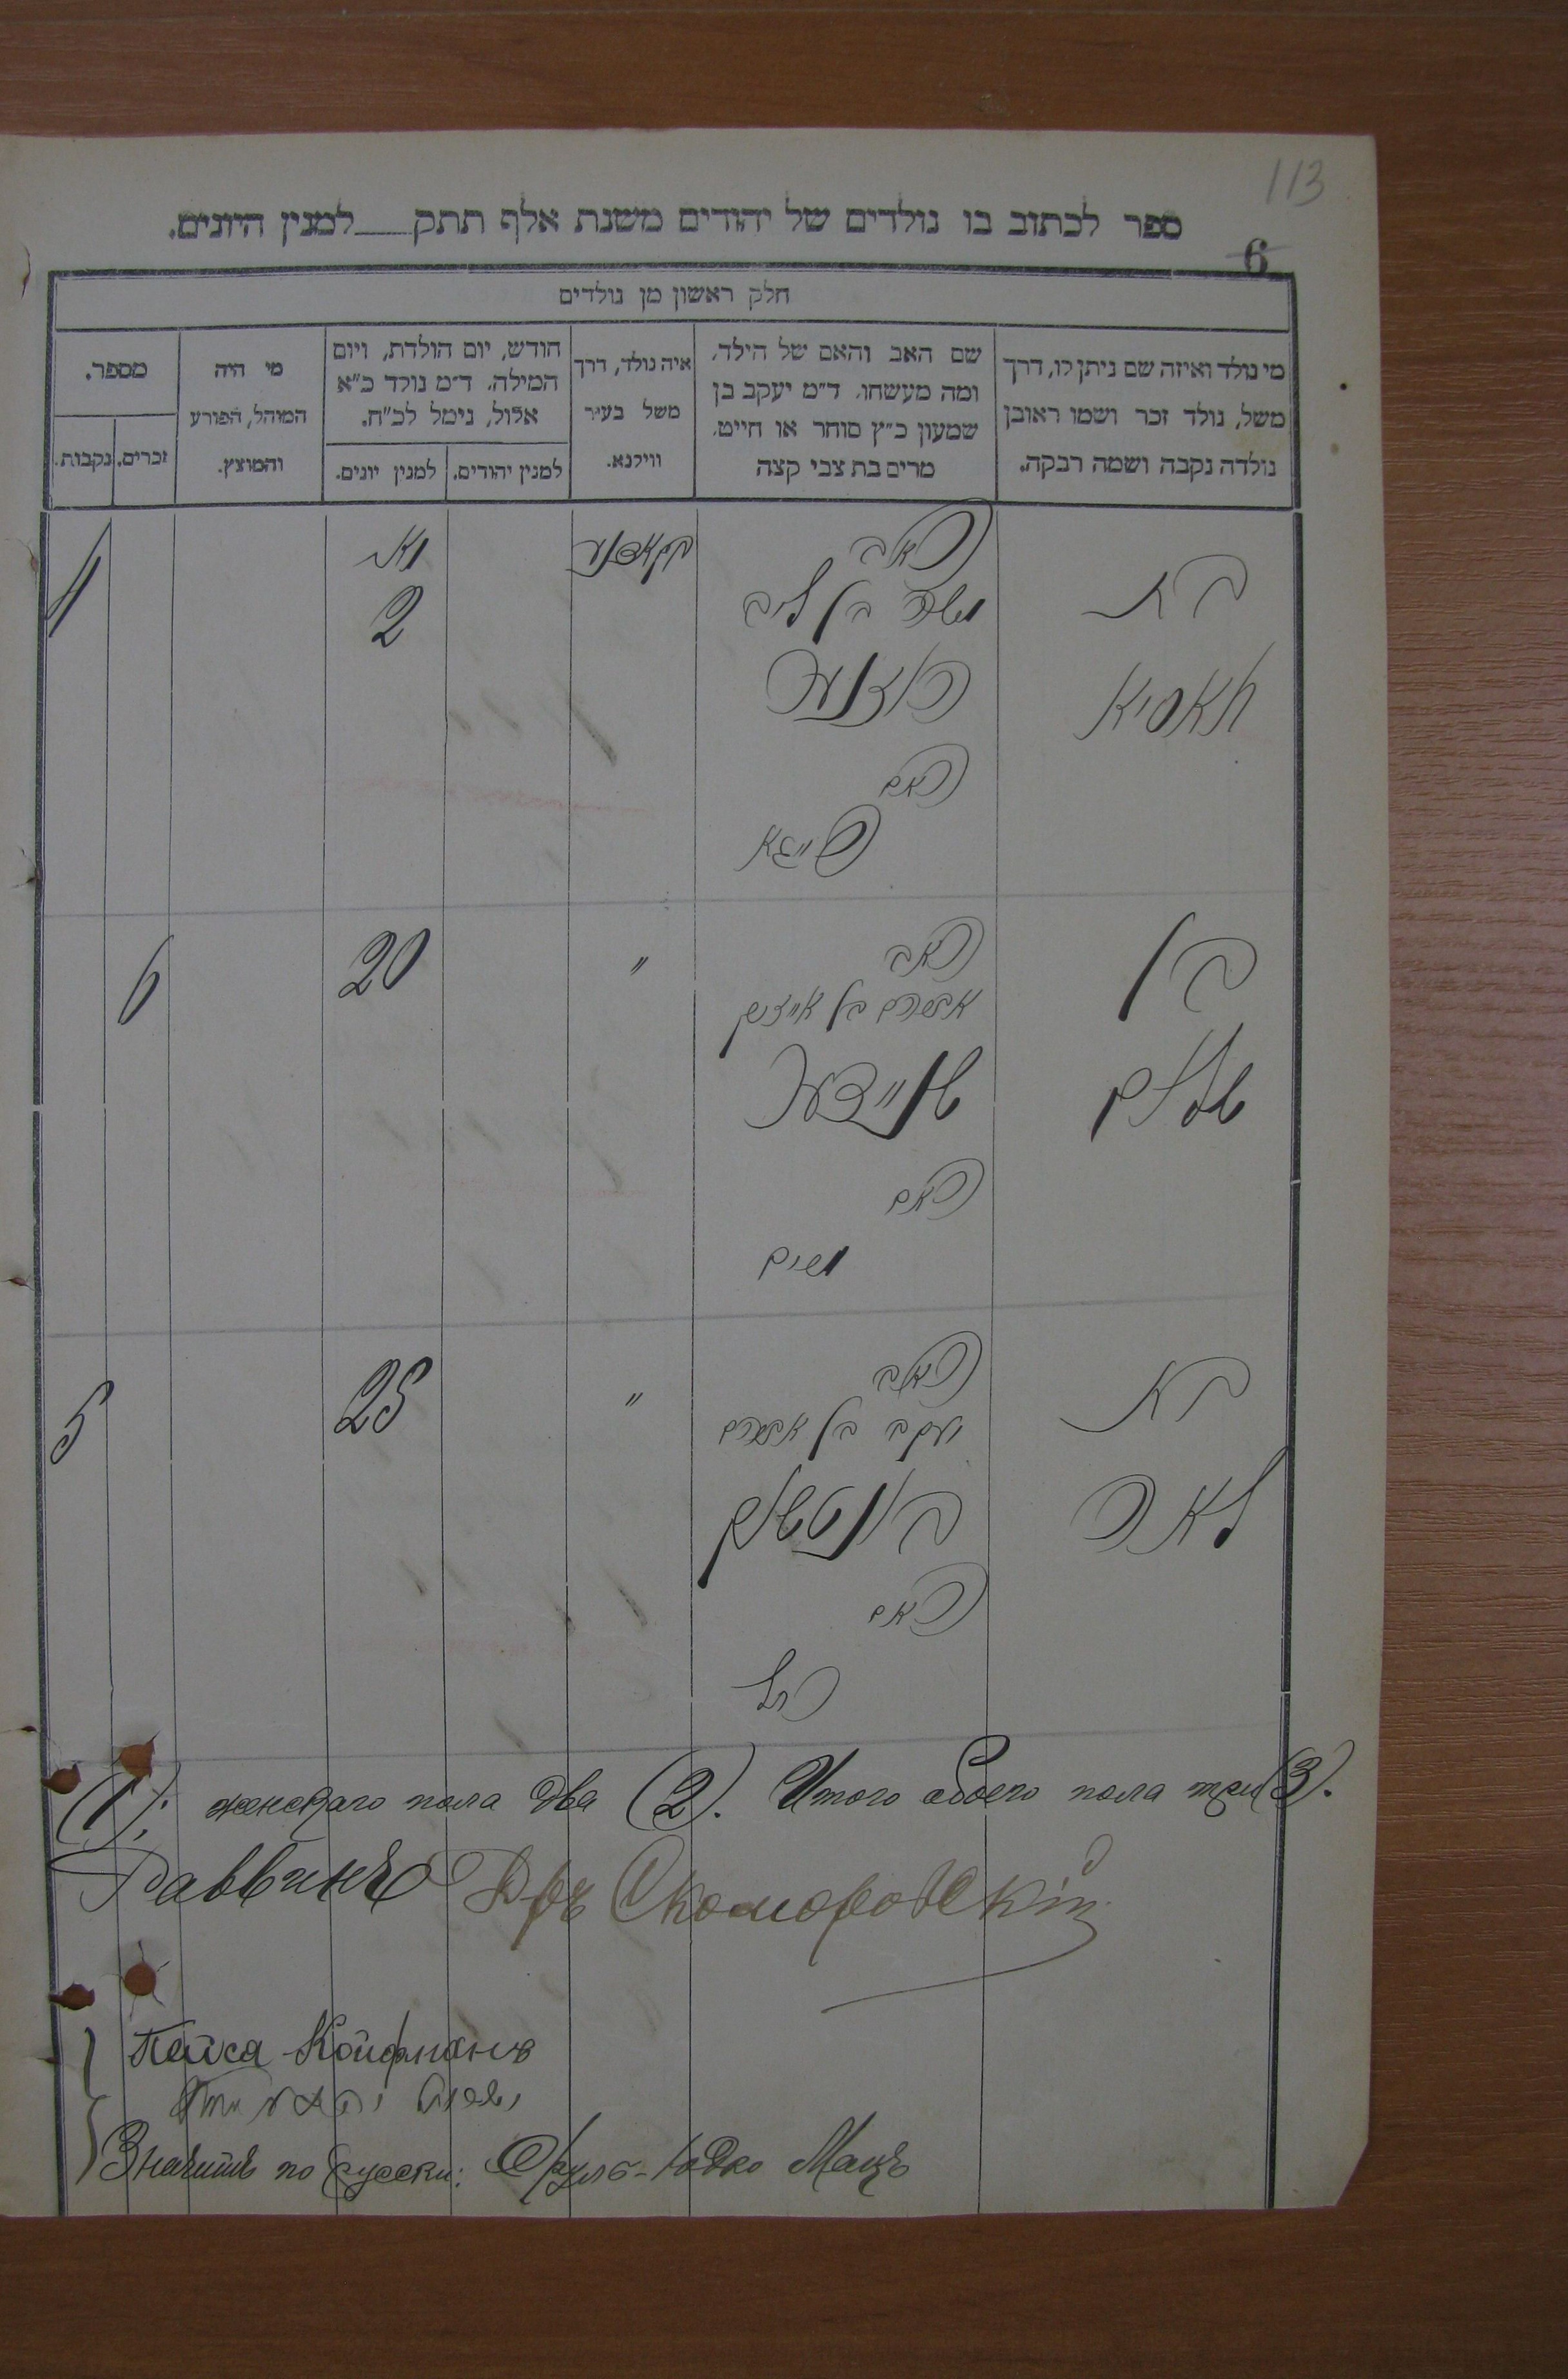 113
ספר לכתוב בו נולדים של יהודים משנת אלף תתק___למנין היונים.
6
חלק ראשון מן נולדים
מי נולד ואיזה שם ניתן לו, דרך משל, נולד זכר ושמו ראובן נולדה נקבה ושמה רבקה.
שם האב והאם של הילד, ומה מעשהו. ד״מ יעקב בן שמעון כ״ץ סוחר או חייט, מרים בת צבי קצה
איה נולד, דרך משל בעיר ווילנא.
חודש, יום הולדת, ויום המילה. ד״מ נולד כ״א אלול, נימל לכ״ח.
למנין יהודים.
למנין יונים.
מי היה המוהל, הפורע והמוצץ.
מספר.
זכרים.
נקבות.
בת
האב
משה בן ליב
האם
2
4
בן
שלום
האב
אברהם בן אייזיק
שניידער
האם
מרים
"
20
6
בת
לאה
האב
יעקב בן אברהם
האם
רחל
"
25
5
(1); женскаго пола два (2). Итого обоего пола три (3).
Раввинъ Д-ръ Скоморовскій
Пейса Койфманъ
Значитъ по русски: Сруль-Юдко Мацъ